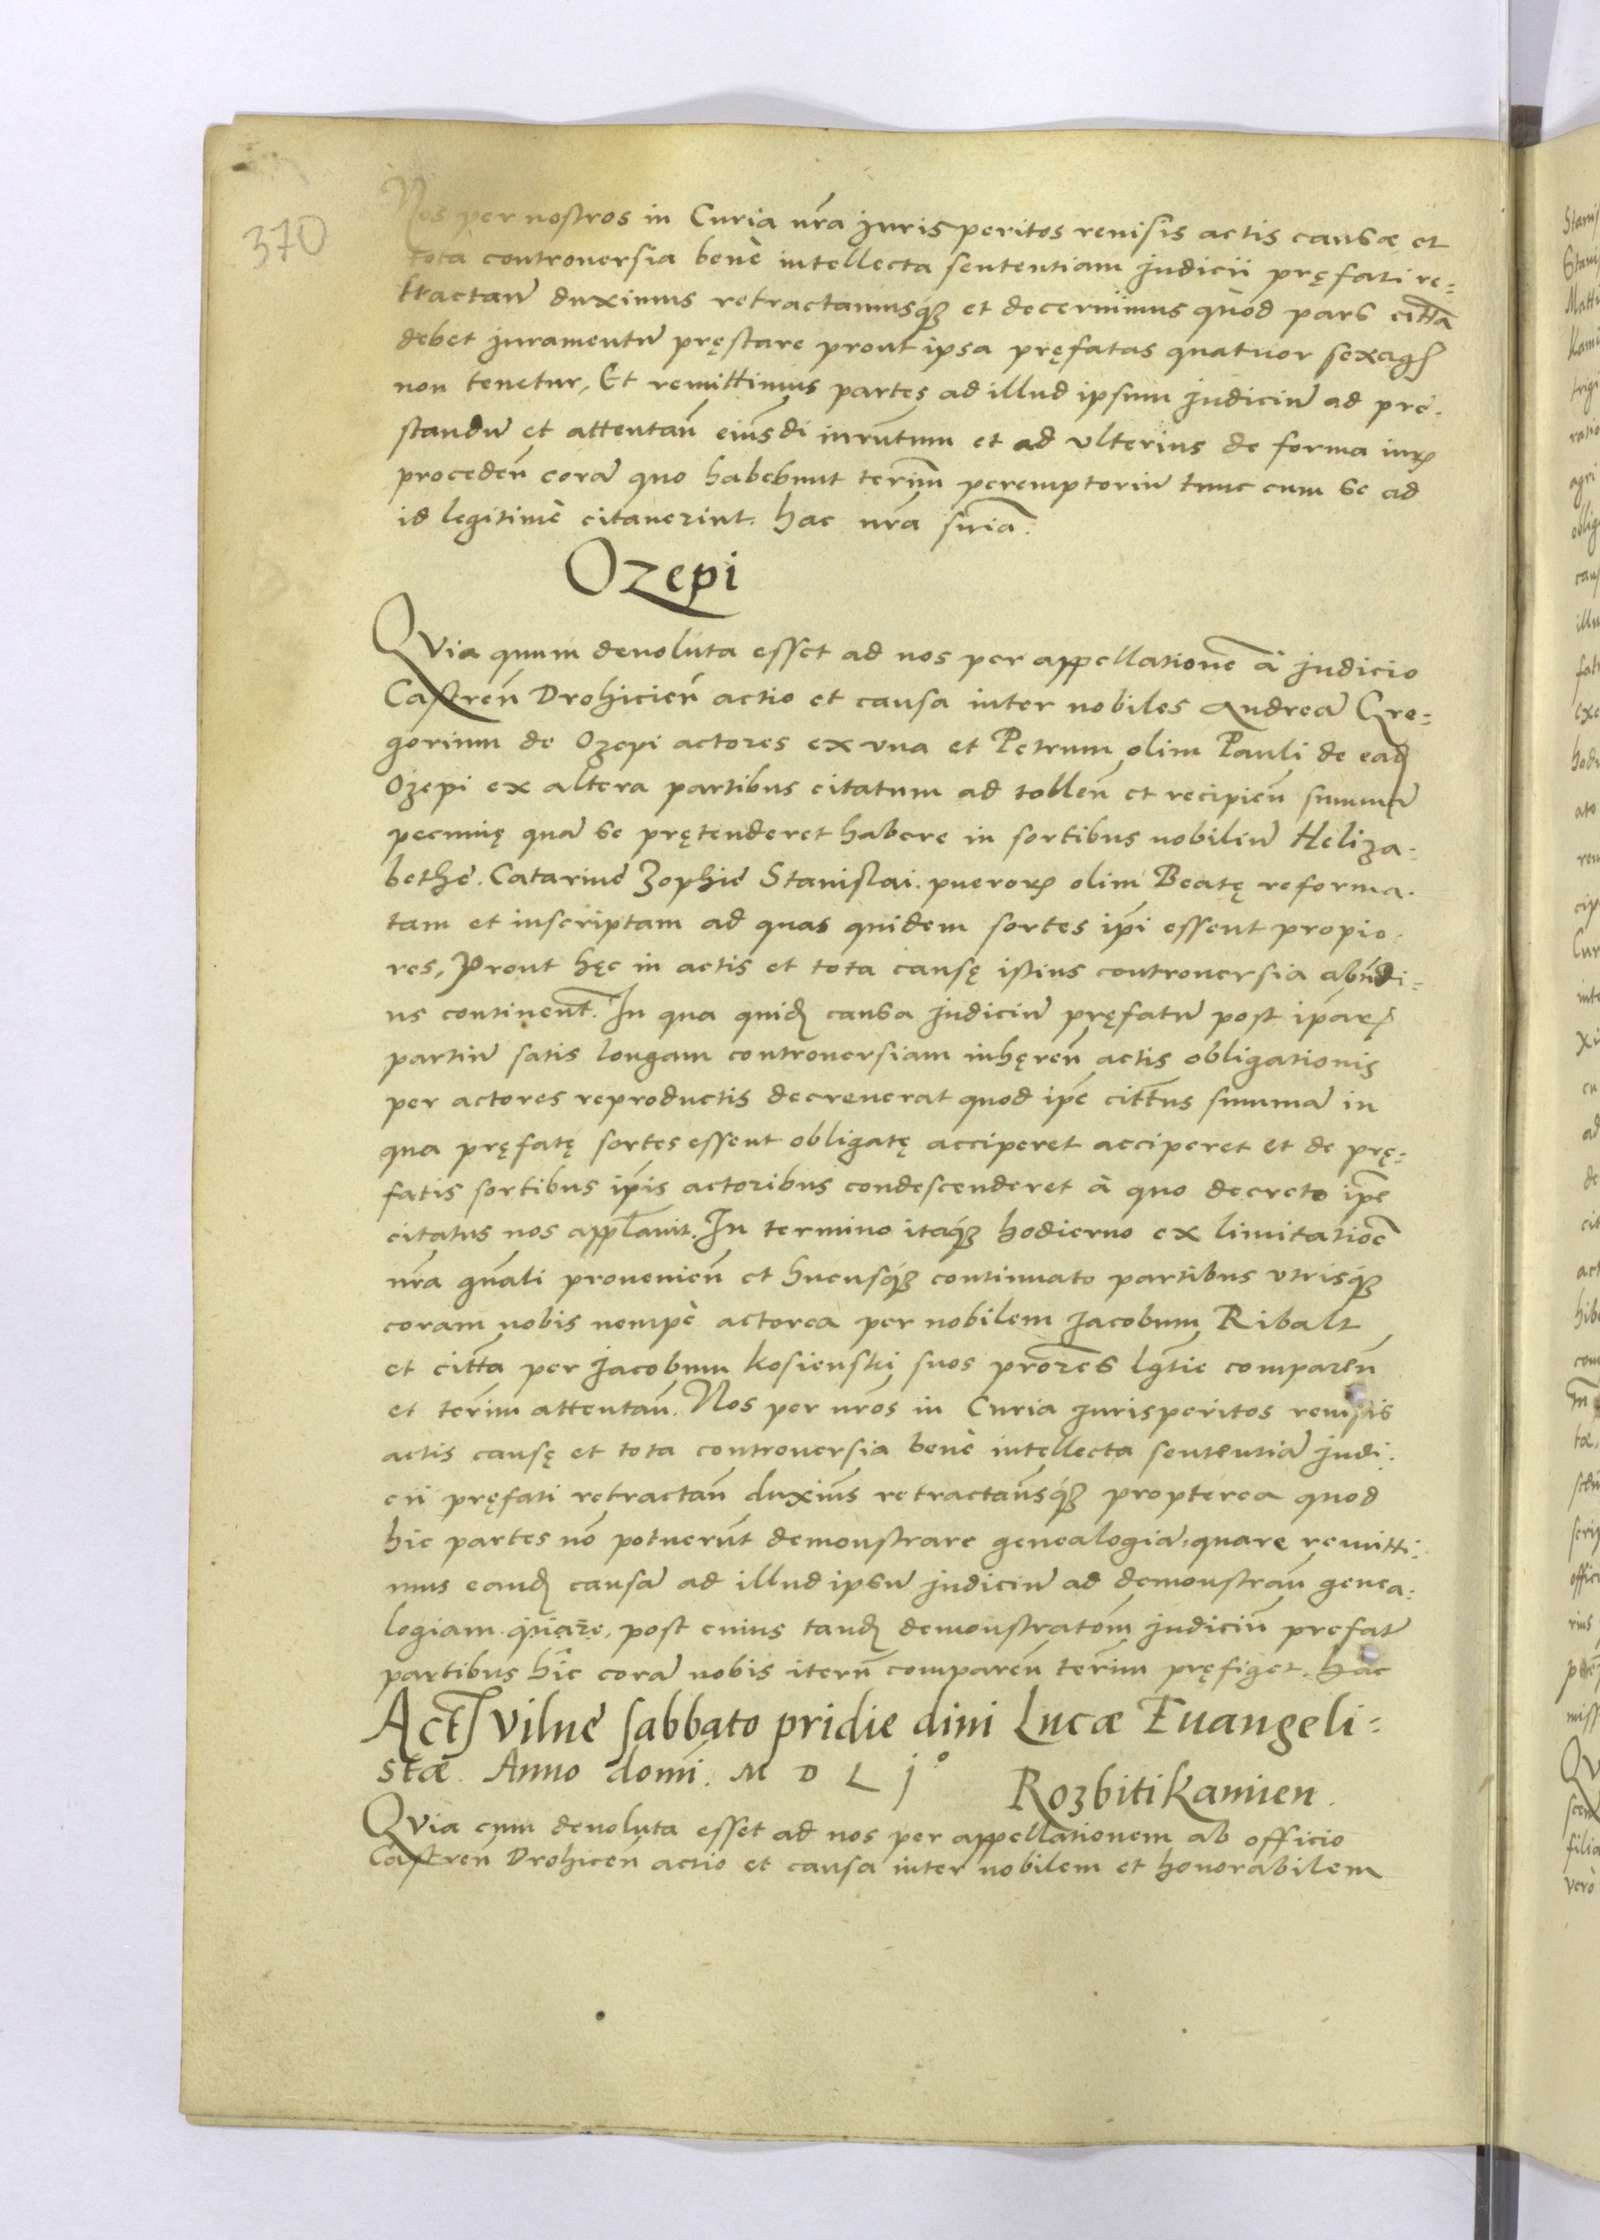 370
Nos per nostros in Curia nr̃a jurisperitos reuisis actis causæ et
tota controuersia benè intellecta sententiam judicii pręfati re=
tractan̄ duximus retractamusq́ȝ et decernimus quòd pars citt̃a
debet juramentū pręstare prout ipsa pręfatas quatuor sexag
non tenetur, Et remittimus partes ad illud ipsum judiciū ad prę-
standū et attentan̄ eiusdi iurn̄tum et ad vlterius de forma iur
proceden̄ corā quo habebunt termi͂n peremptoriū tunc cum se ad
id legitimè citauerint. hac nr̃a sn̄ia.
Ozepi
Qvia quum deuoluta esset ad nos per appellationē à judicio
Castren̄ Drohicien̄ actio et causa inter nobiles Andreā Gre=
gorium de Ozepi actores ex vna et Petrum olim Pauli de ead
Ozepi ex altera partibus citatum ad tollen̄ et recipien̄ summā
pecunię quā se prętenderet habere in sortibus nobiliū Heliza-
bethę. Catarinę Zophię Stanislai. pueror olim Beatę reforma-
tam et inscriptam ad quas quidem sortes ip̄i essent propio-
res, Prout hęc in actis et tota causę istius controuersia abūndi=
us continent̄. In qua quid causa judiciū pręfatū post ip̄ar
partiū satis longam controuersiam inhęren̄ actis obligationis
per actores reproductis decreuerat quod ip̄e citt̄us summā in
qua pręfatę sortes essent obligatę acciperet acciperet et de prę-
fatis sortibus ip̄is actoribus condescenderet à quo decreto ip̄e
citatus nos appl̄auit. In termino itaq́ȝ hodierno ex limitatiōe
nr̃a gn̄ali prouenien̄ et hucusq́ȝ continuato partibus vtrisq́ȝ
coram nobis nempè actorea per nobilem Jacobum Ribalt
et citt̄a per Jacobum Kosienski suos pror̄es lgt̄ie comparen̄
et termi͂n attentan̄. Nos per nr̄os in Curia jurisperitos reuisis
actis causę et tota controuersia benè intellecta sententiā judi-
cii pręfati retractan̄ duxim̄s retractam̄sq́ȝ propterea quod
hic partes nō potuerūt demonstrare genealogiā, quare remitti-
mus eand causā ad illud ipsū judiciū ad demonstran̄ genea-
logiam quare, post cuius tand demonstratōm judiciū prefatū
partibus hic corā nobis iterū comparen̄ termi͂n pręfiget. hac
Act Vilnę sabbato pridie diui Lucæ Euangeli=
stæ. Anno domi͂. M D L jº
Rozbitikamien.
Qvia cum deuoluta esset ad nos per appellationem ab officio
Castren̄ Drohicen̄ actio et causa inter nobilem et honorabilem